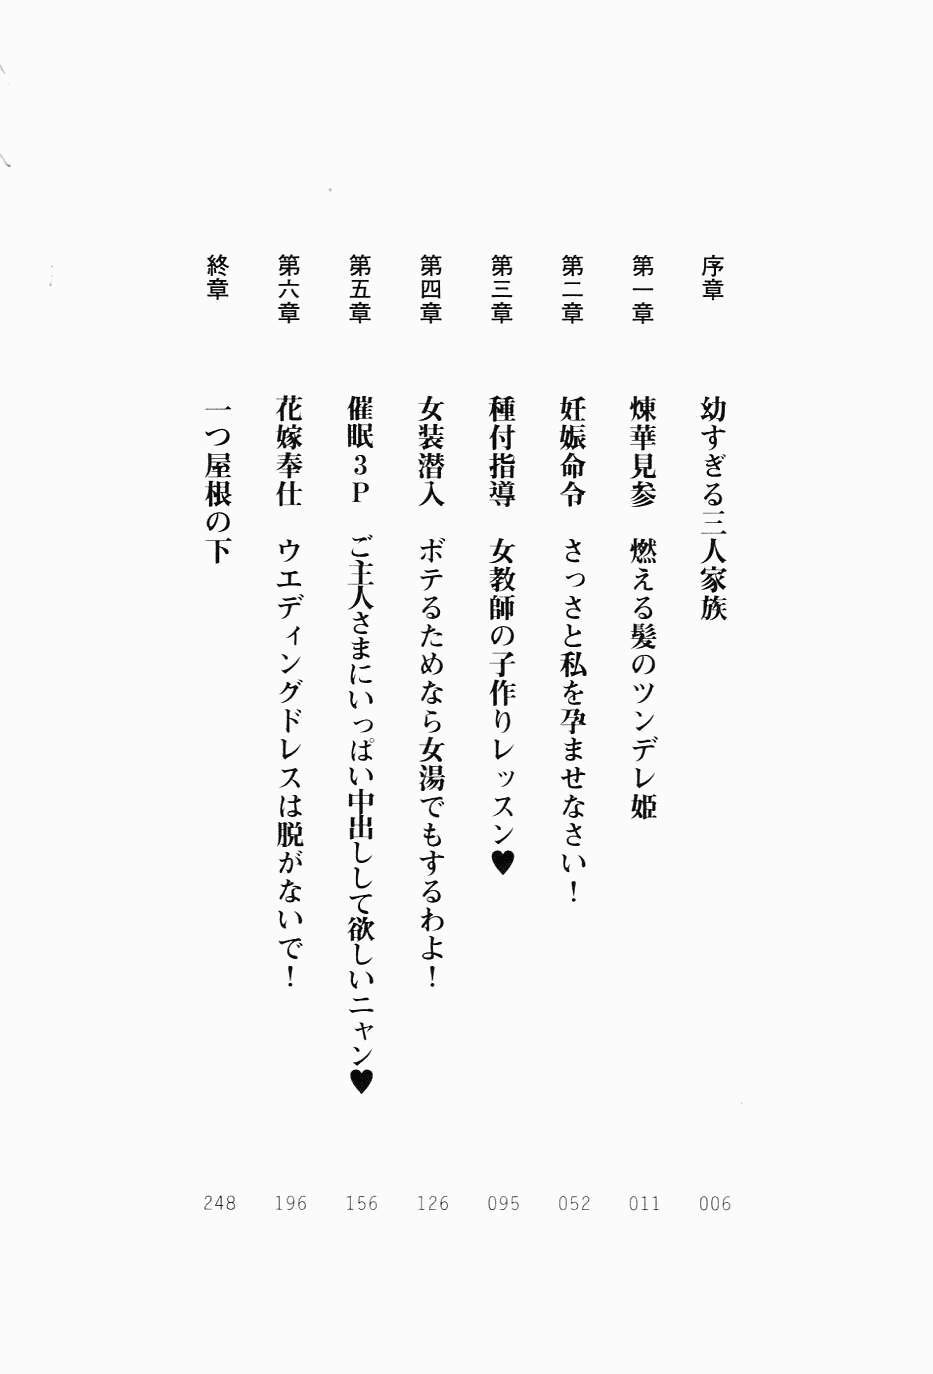 序章　幼すぎる三人家族　006
第一章　煉華見参　燃える髪のツンデレ姫　011
第二章　妊娠命令　さっさと私を孕ませなさい！　052
第三章　種付指導　女教師の子作りレッスン♥　095
第四章　女装潜入　ボテるためなら女湯でもするわよ！　126
第五章　催眠3P　ご主人さまにいっぱい中出しして欲しいニャン♥　156
第六章　花嫁奉仕　ウエディングドレスは脱がないで！　196
終章　一つ屋根の下　248